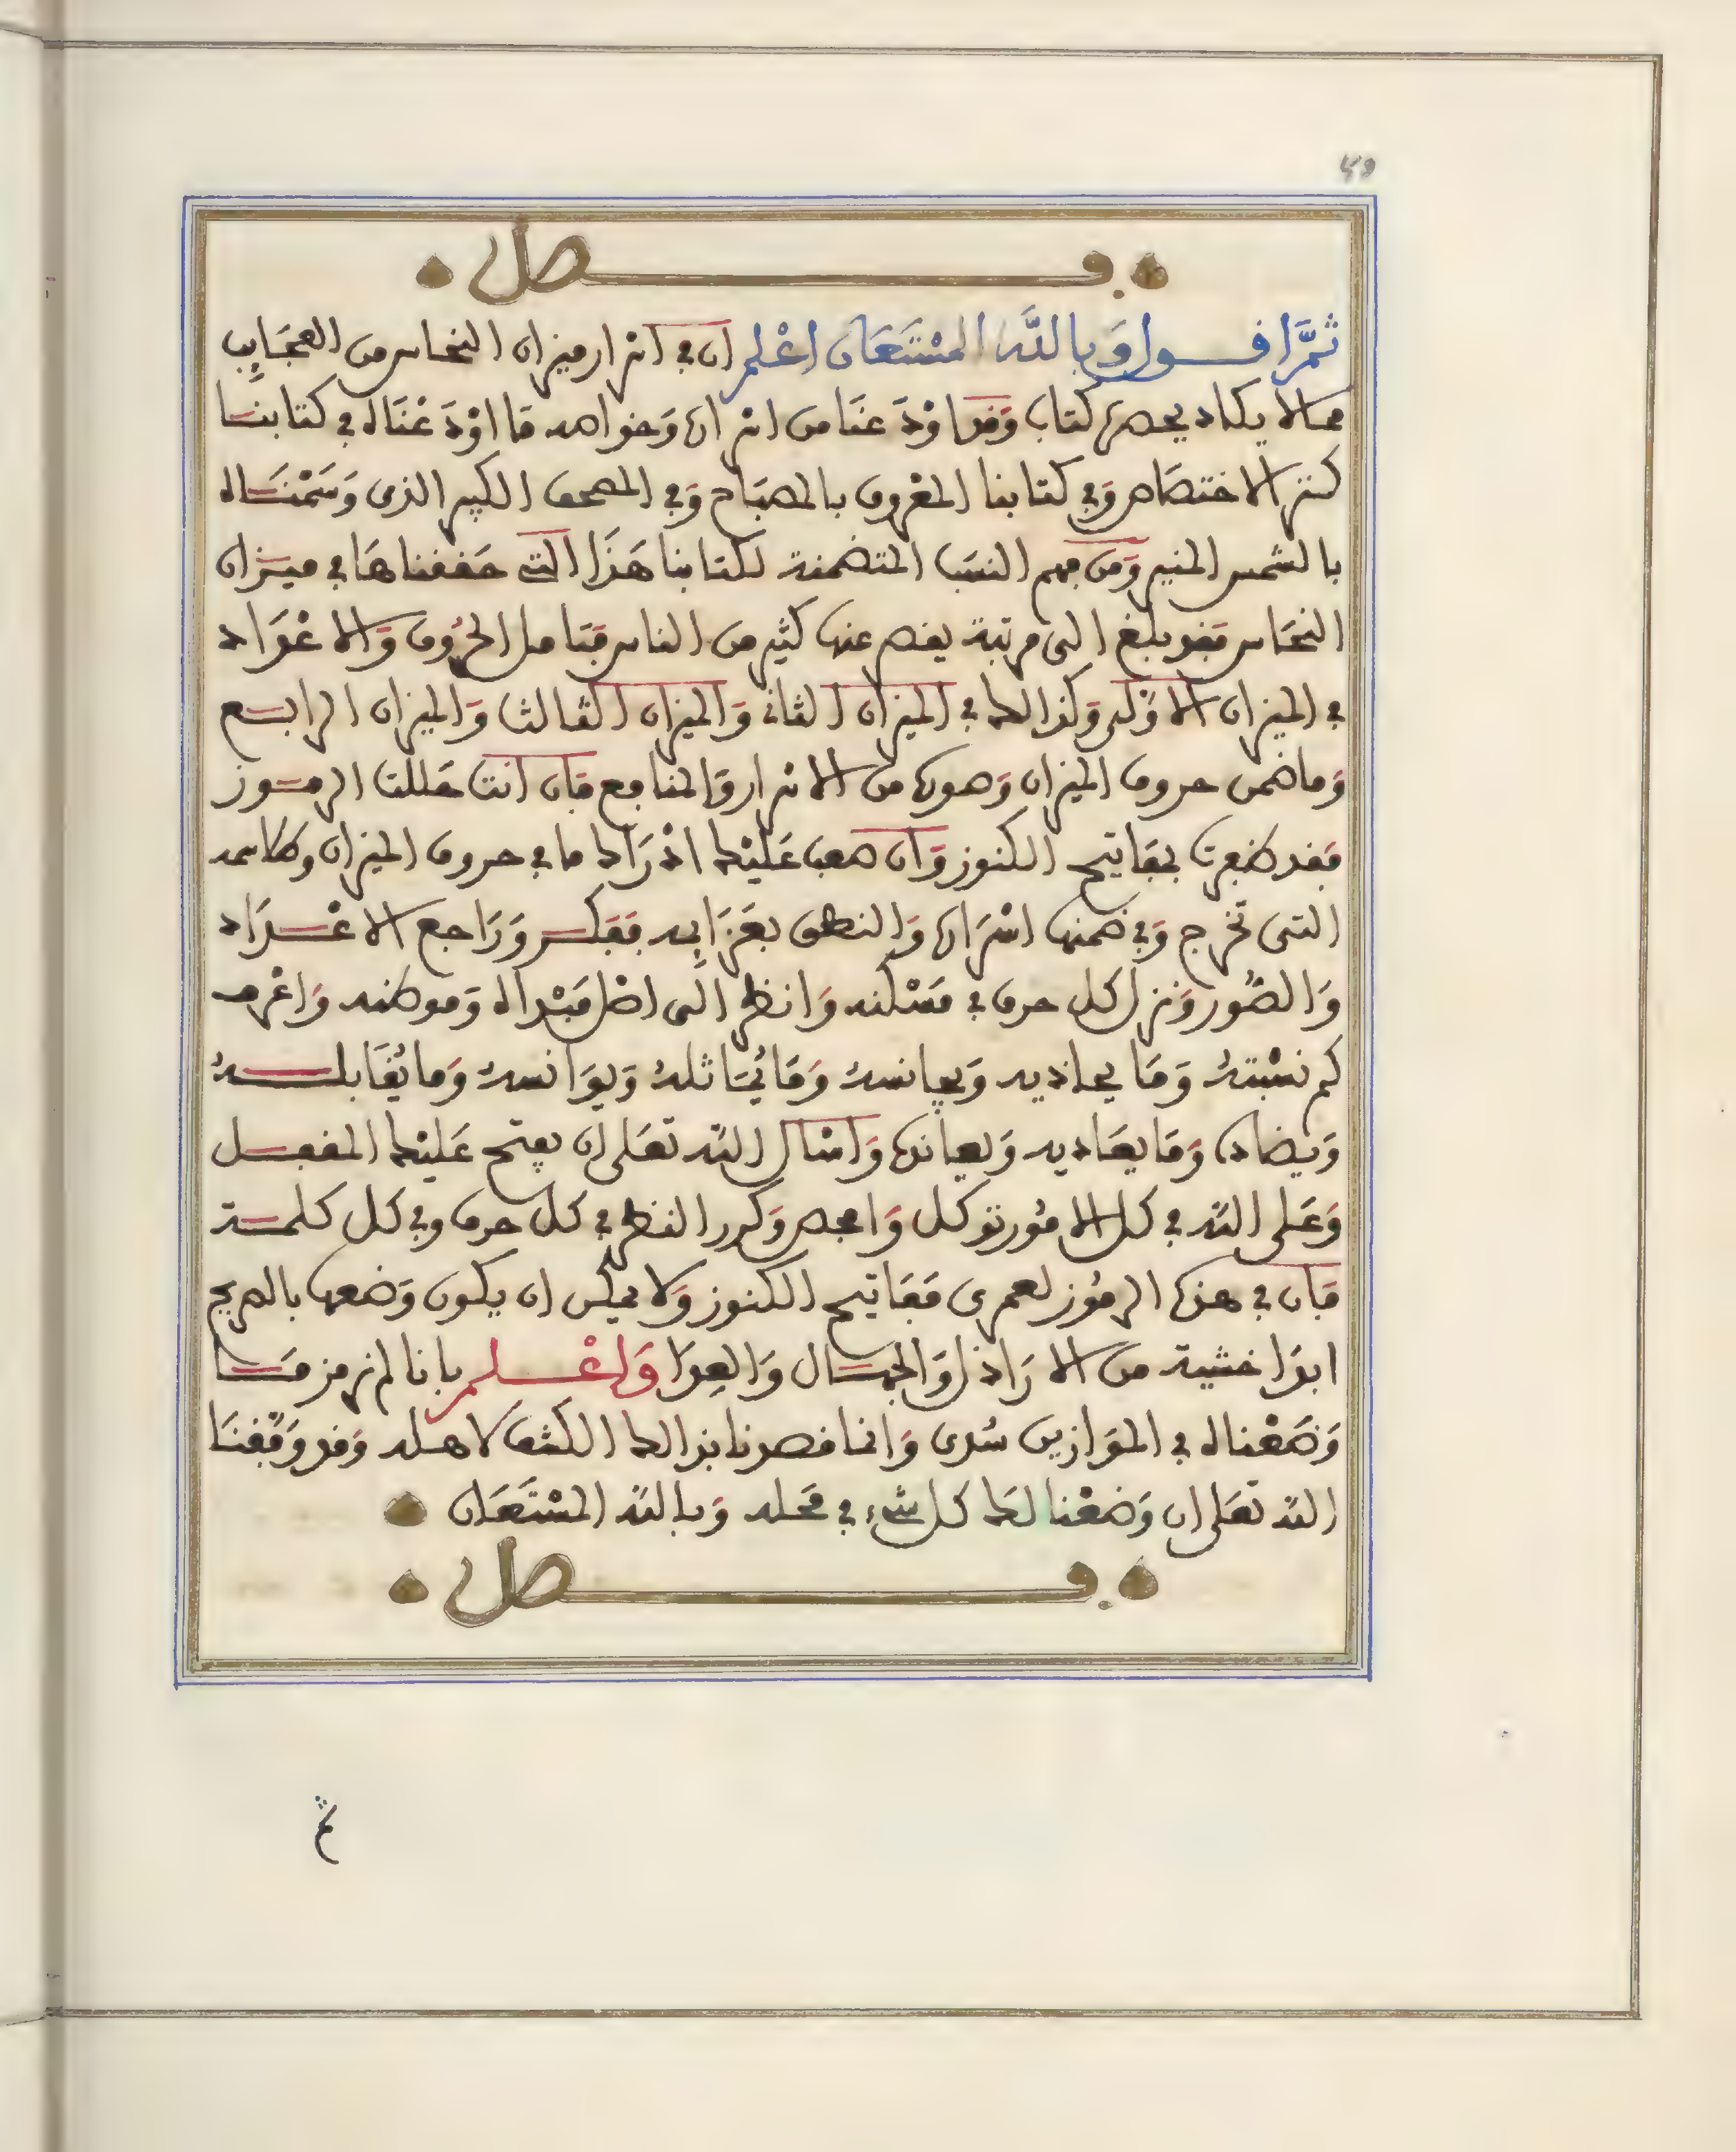 49
فصل
ثمَّ اقول وَبِاللَّه المسْتَعَان اعْلم ان في اسرار ميزان النحاس من العجَايِب
مما لا يكاد يحصره كتاب وَقد اوْدَعنَا من اسراره وَخواصه مَا اوْدَعْنَاه في كتابنا
كنز الاختصَاص وَفي كتابنا المعْروف بالمصبَاح وَفي المصحف الكبير الذى وَسَمْنَاه
بالشمس المنير وَمن فهم النسَب المتضمنة لكتابنا هَذَا التى حَققناهَا في ميزان
النحَاس فقد بلغ الى مرتبة يقصر عنها كثير من الناس فتَامل الحُروف وَالاعْدَاد
في الميزان الاوّل وَكذالك في الميزان الثانى وَالميزان الثالث وَالميزان الرابع
وَما ضمن حروف الميزان وَصوره من الاسرار وَالمنافع فان انت حَللت الرموز
فَقد ظفرت بمفَاتيح الكنوز وَان صعب عَليْك ادْرَاك ما في حروف الميزان وكلاسه
التى تخرج وَفي ضمنها اسْرَاره وَالنطق بغَرَايِبه فَفَكر وَرَاجع الاعْدَاد
وَالصُّور وَنزل كل حرف في مَسْكنه وَانظر الَى اصْل مَبْداه وَموطنه وَاعْرف
كم نسْبتهُ وَمَا يحاذيه وَيجانسهُ وَمَا يُمَاثلهُ وَيوَانسهُ وَما يُقَابلهُ
وَيضاده وَمَا يعَاديه وَيعانده وَاسْال اللّه تعَلى ان يفتح عَليْك المقفل
وَعَلى اللّه في كل الامُور توكل وَافحص وَكرر النظر في كل حرف وفي كل كلمة
فَان في هذه الرمُوز لعمرى مَفَاتيح الكنوز وَلا يمكن ان يكون وَضعها بالصريح
ابدَا خشية من الارَاذل وَالجهال وَالعِدَا وَاعْلم بانا لم نرمز مَا
وَضَعْناه في الموَازين سُدى وَانما قصدنا بذالك الكشف لاهله وَقد وَفّقنَا
اللّه تعَلى ان وَضعْنا لك كل شىء في مَحله وَباللّه المسْتَعَان
فصل
ثم